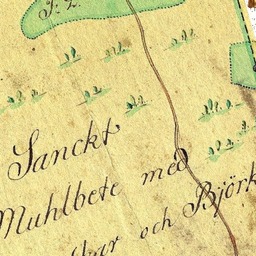 Sanckt
Muhlbete med
och Björk